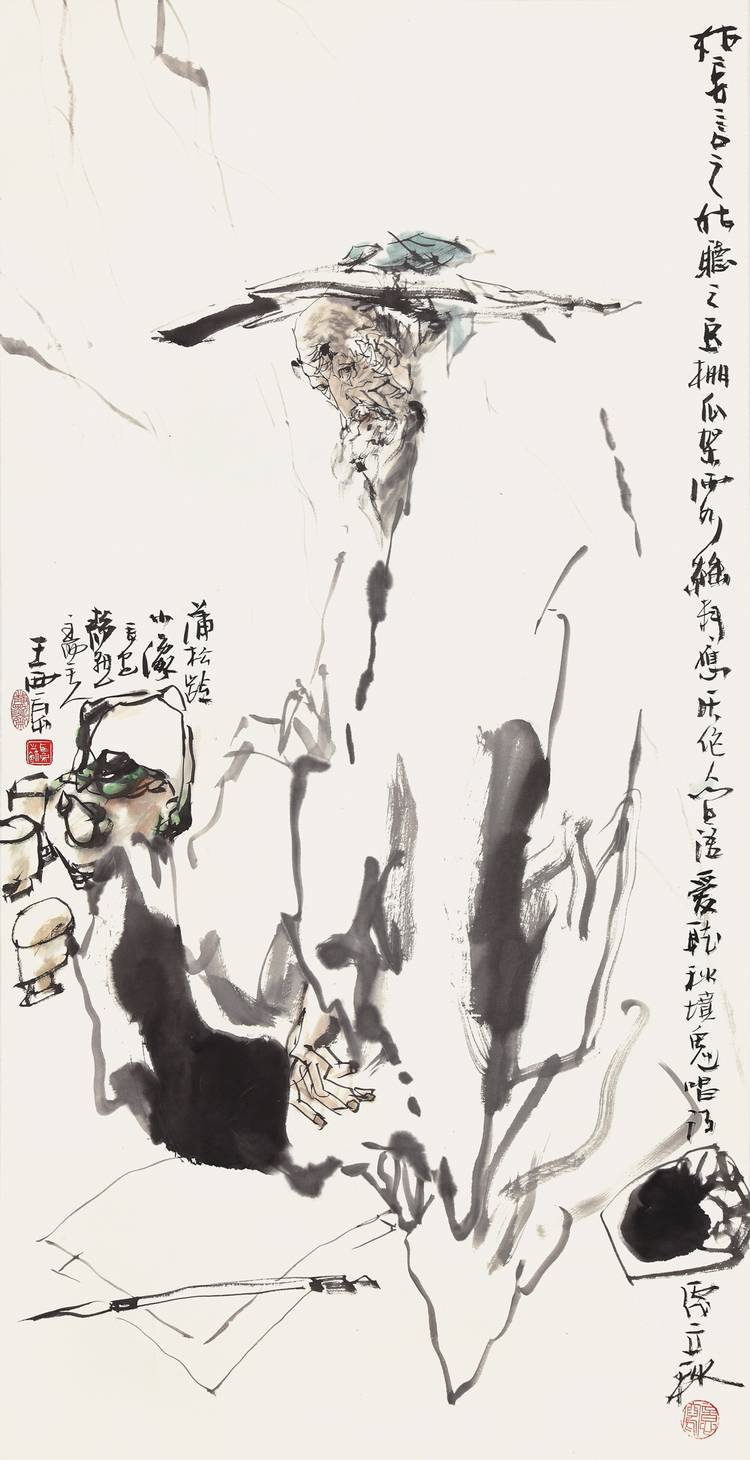 姑妄言之姑聽之豆棚瓜架雨如絲料應厌作人间语爱聽秋墳鬼唱詩
立秋
蒲松龄
小像
王西京